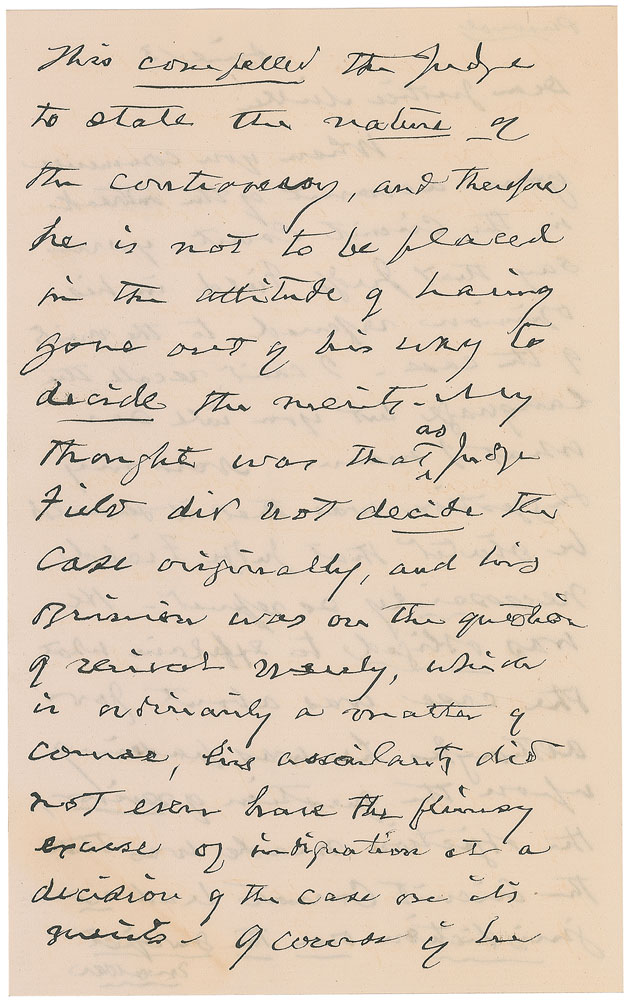 This compelled the Judge
to state the nature of
the controversy, and therefore
he is not to be placed
in the attitude of having
gone out of his way to
decide the merits. My
thought was that as Judge
Field did not decide the
case originally, and his
opinion was on the question
of revivor merely, which
is ordinarily a matter of
course, his assailants did
not even have the flimsy
excuse of indignation at a
decision of the case on its
merits - Of course if he